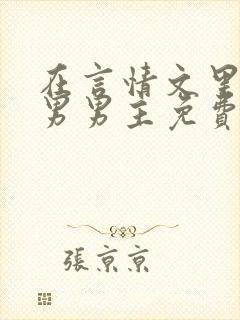 在言情文里
男男主免費
張京京